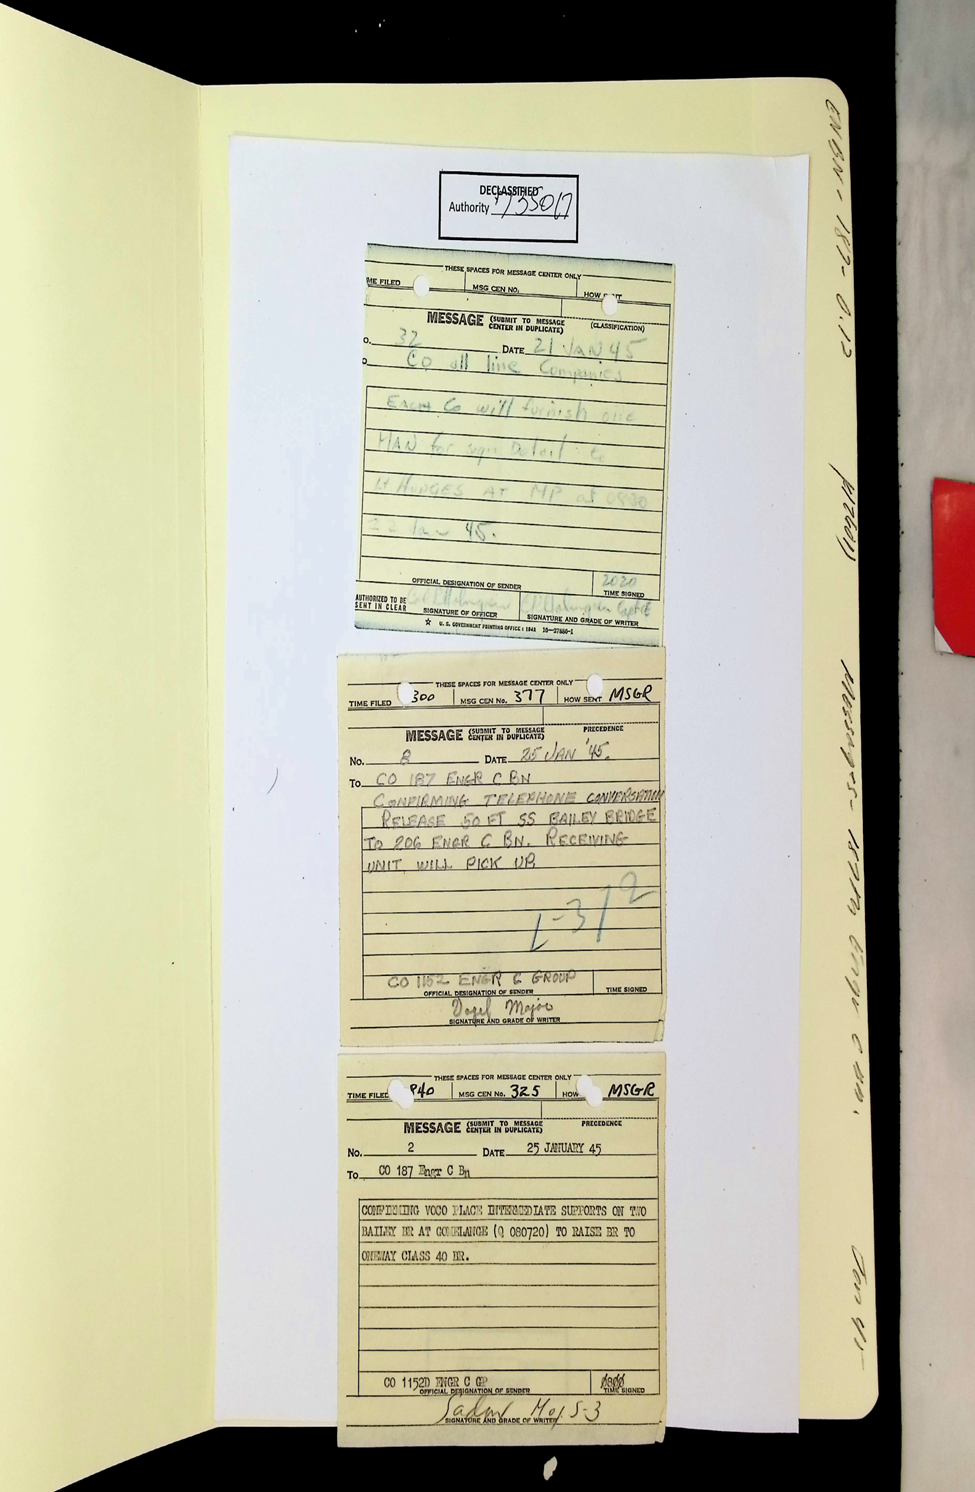 DECLASSIFIED
Authority 735017
THESE SPACES FOR MESSAGE CENTER ONLY
ME FILED MSG CEN NO. HOW
MESSAGE (SUBMIT TO MESSAGE CENTER IN DUPLICATE) (CLASSIFICATION)
O. 32 DATE 21 JAN 45
O CO all line Companies
Each Co will furnish one
MAN for sign Detail to
Lt HODGES AT MP at 0830
22 Jan 45.
2020
OFFICIAL DESIGNATION OF SENDER TIME SIGNED
AUTHORIZED TO BE SENT IN CLEAR
SIGNATURE OF OFFICER SIGNATURE AND GRADE OF WRITER
☆ U. S. GOVERNMENT PRINTING OFFICE : 1943
THESE SPACES FOR MESSAGE CENTER ONLY
TIME FILED 300 MSG CEN No. 377 HOW SENT MSGR
MESSAGE (SUBMIT TO MESSAGE CENTER IN DUPLICATE) PRECEDENCE
No. 8 DATE 25 JAN '45.
To CO 187 ENGR C BN
CONFIRMING TELEPHONE CONVERSATION
RELEASE 50 FT SS BAILEY BRIDGE
TO 206 ENGR C BN. RECEIVING
UNIT WILL PICK UP.
CO 1152 ENGR C GROUP
OFFICIAL DESIGNATION OF SENDER TIME SIGNED
Major
SIGNATURE AND GRADE OF WRITER
THESE SPACES FOR MESSAGE CENTER ONLY
TIME FILED 940 MSG CEN No. 325 HOW MSGR
MESSAGE (SUBMIT TO MESSAGE CENTER IN DUPLICATE) PRECEDENCE
No. 2 DATE 25 JANUARY 45
To CO 187 Engr C Bn
CONFIRMING VOCO PLACE INTERMEDIATE SUPPORTS ON TWO
BAILEY BR AT GOMELANGE (Q 080720) TO RAISE BR TO
ONEWAY CLASS 40 BR.
CO 1152D ENGR C GP
OFFICIAL DESIGNATION OF SENDER TIME SIGNED
Maj S-3
SIGNATURE AND GRADE OF WRITER
ENBN-187-0.12
Messages - 187th Engr C Bn,
Jan 45